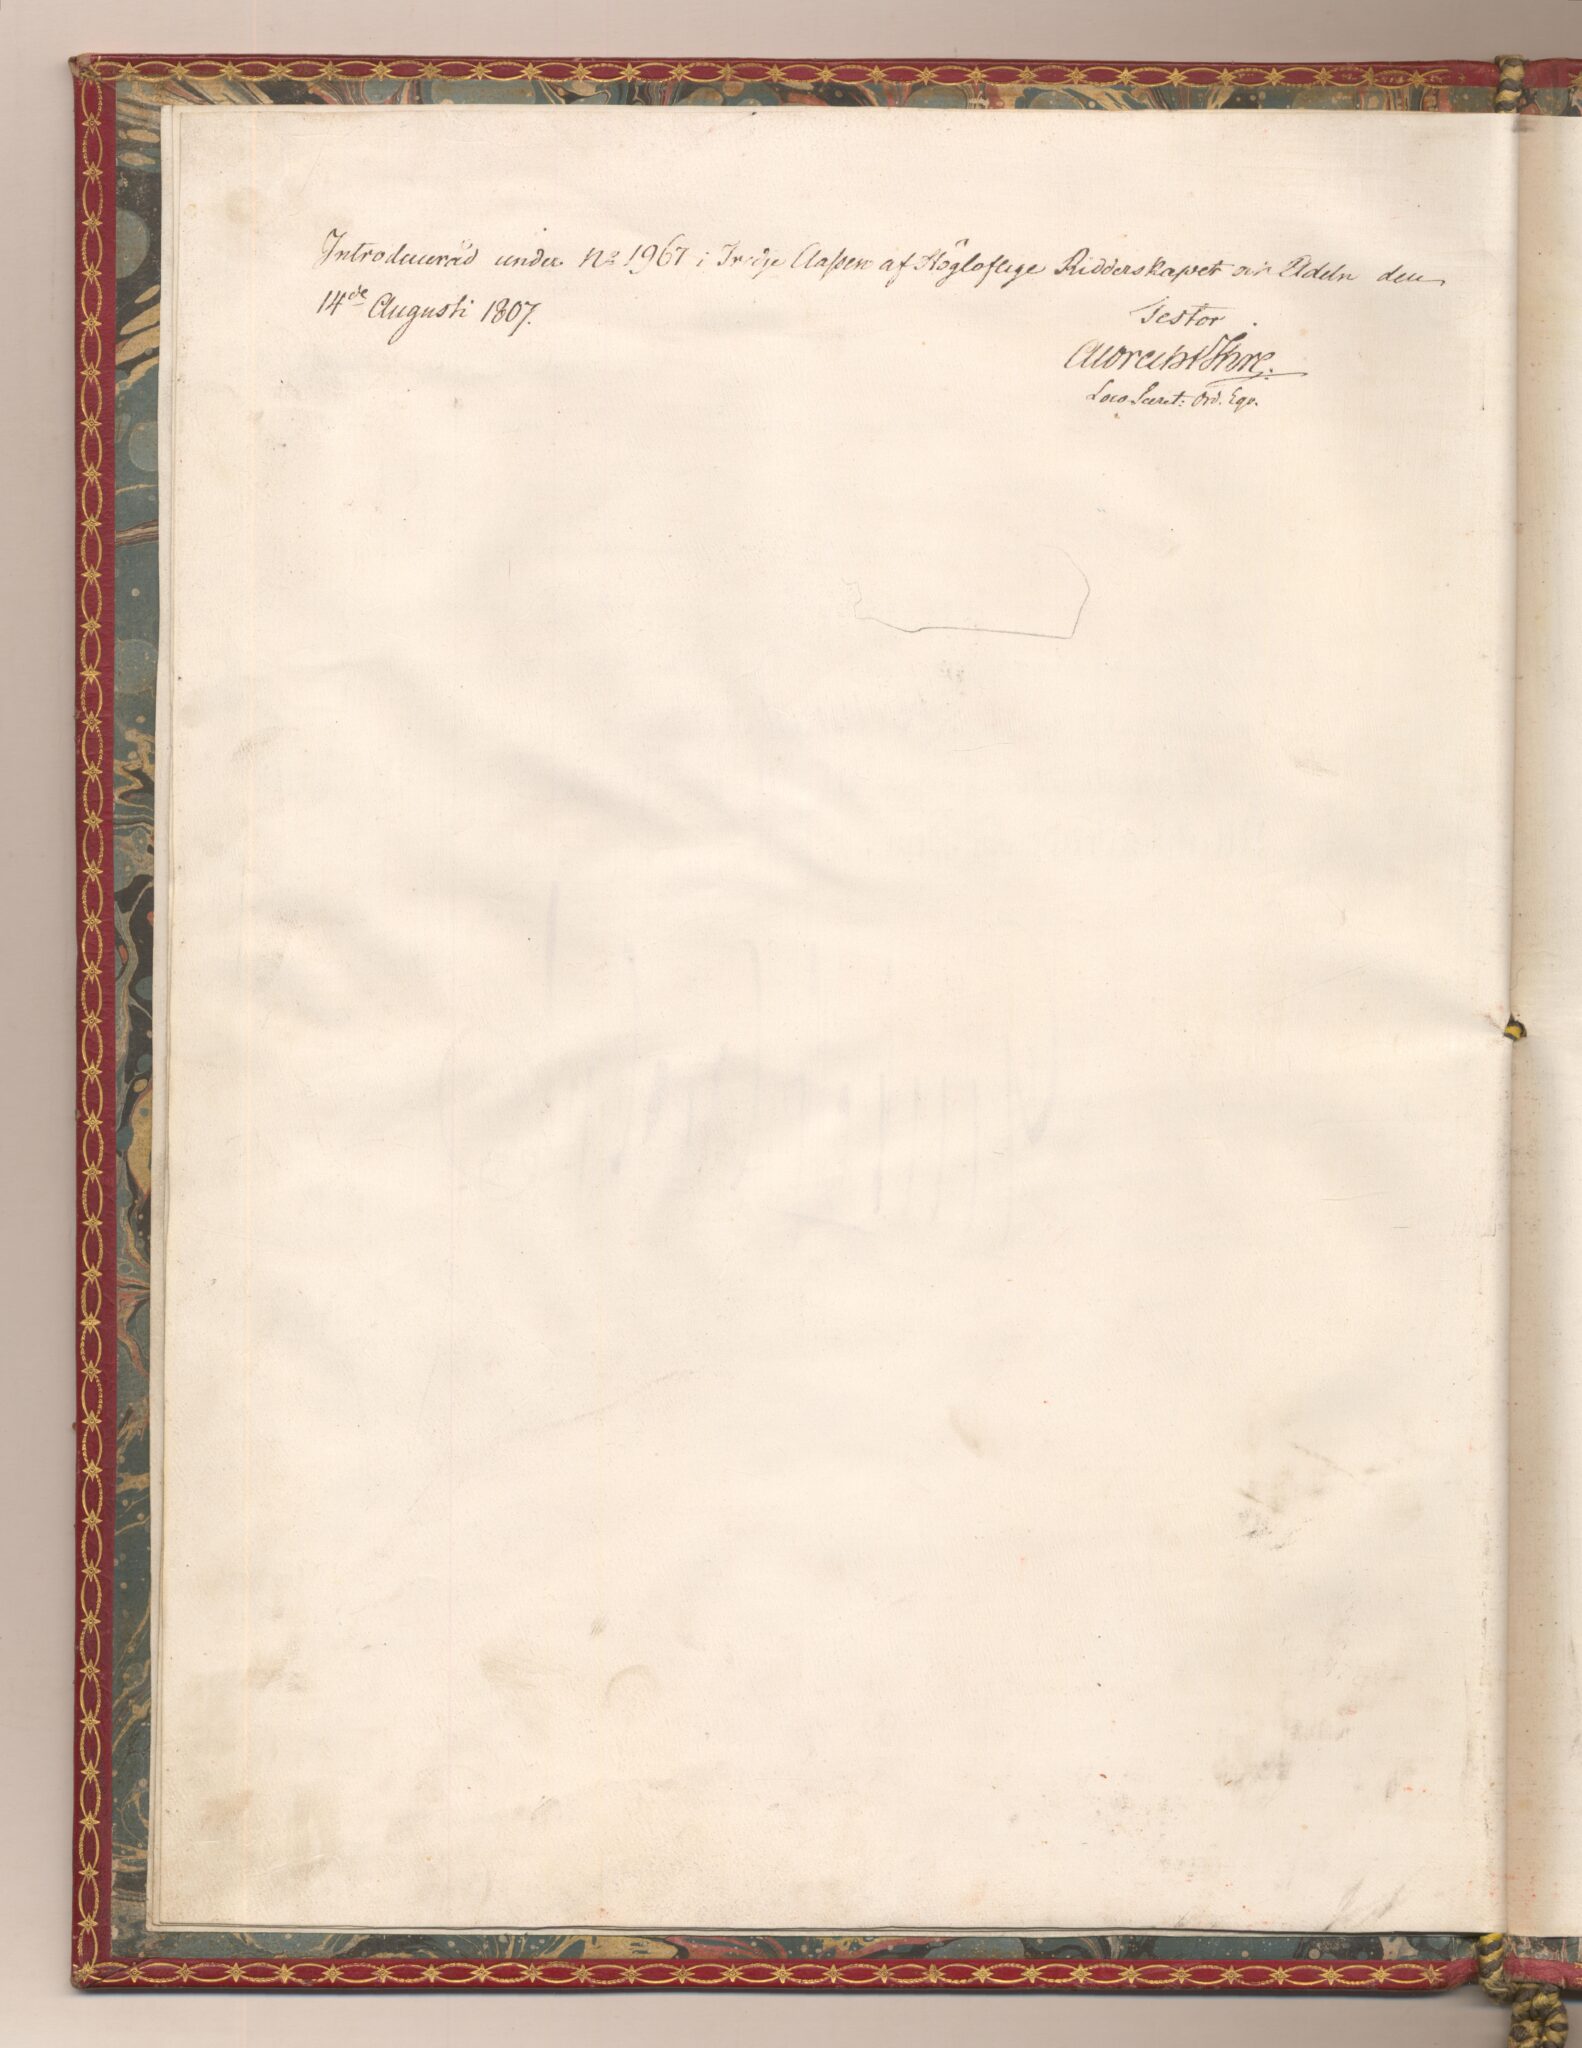 Introducerad under No 1967 i Tredje Classen af Högloflige Ridderskapet och Adeln den
14de Augusti 1807.
Testor
Albrecht Ihre.
Loco Secret: Ord. Eqv.